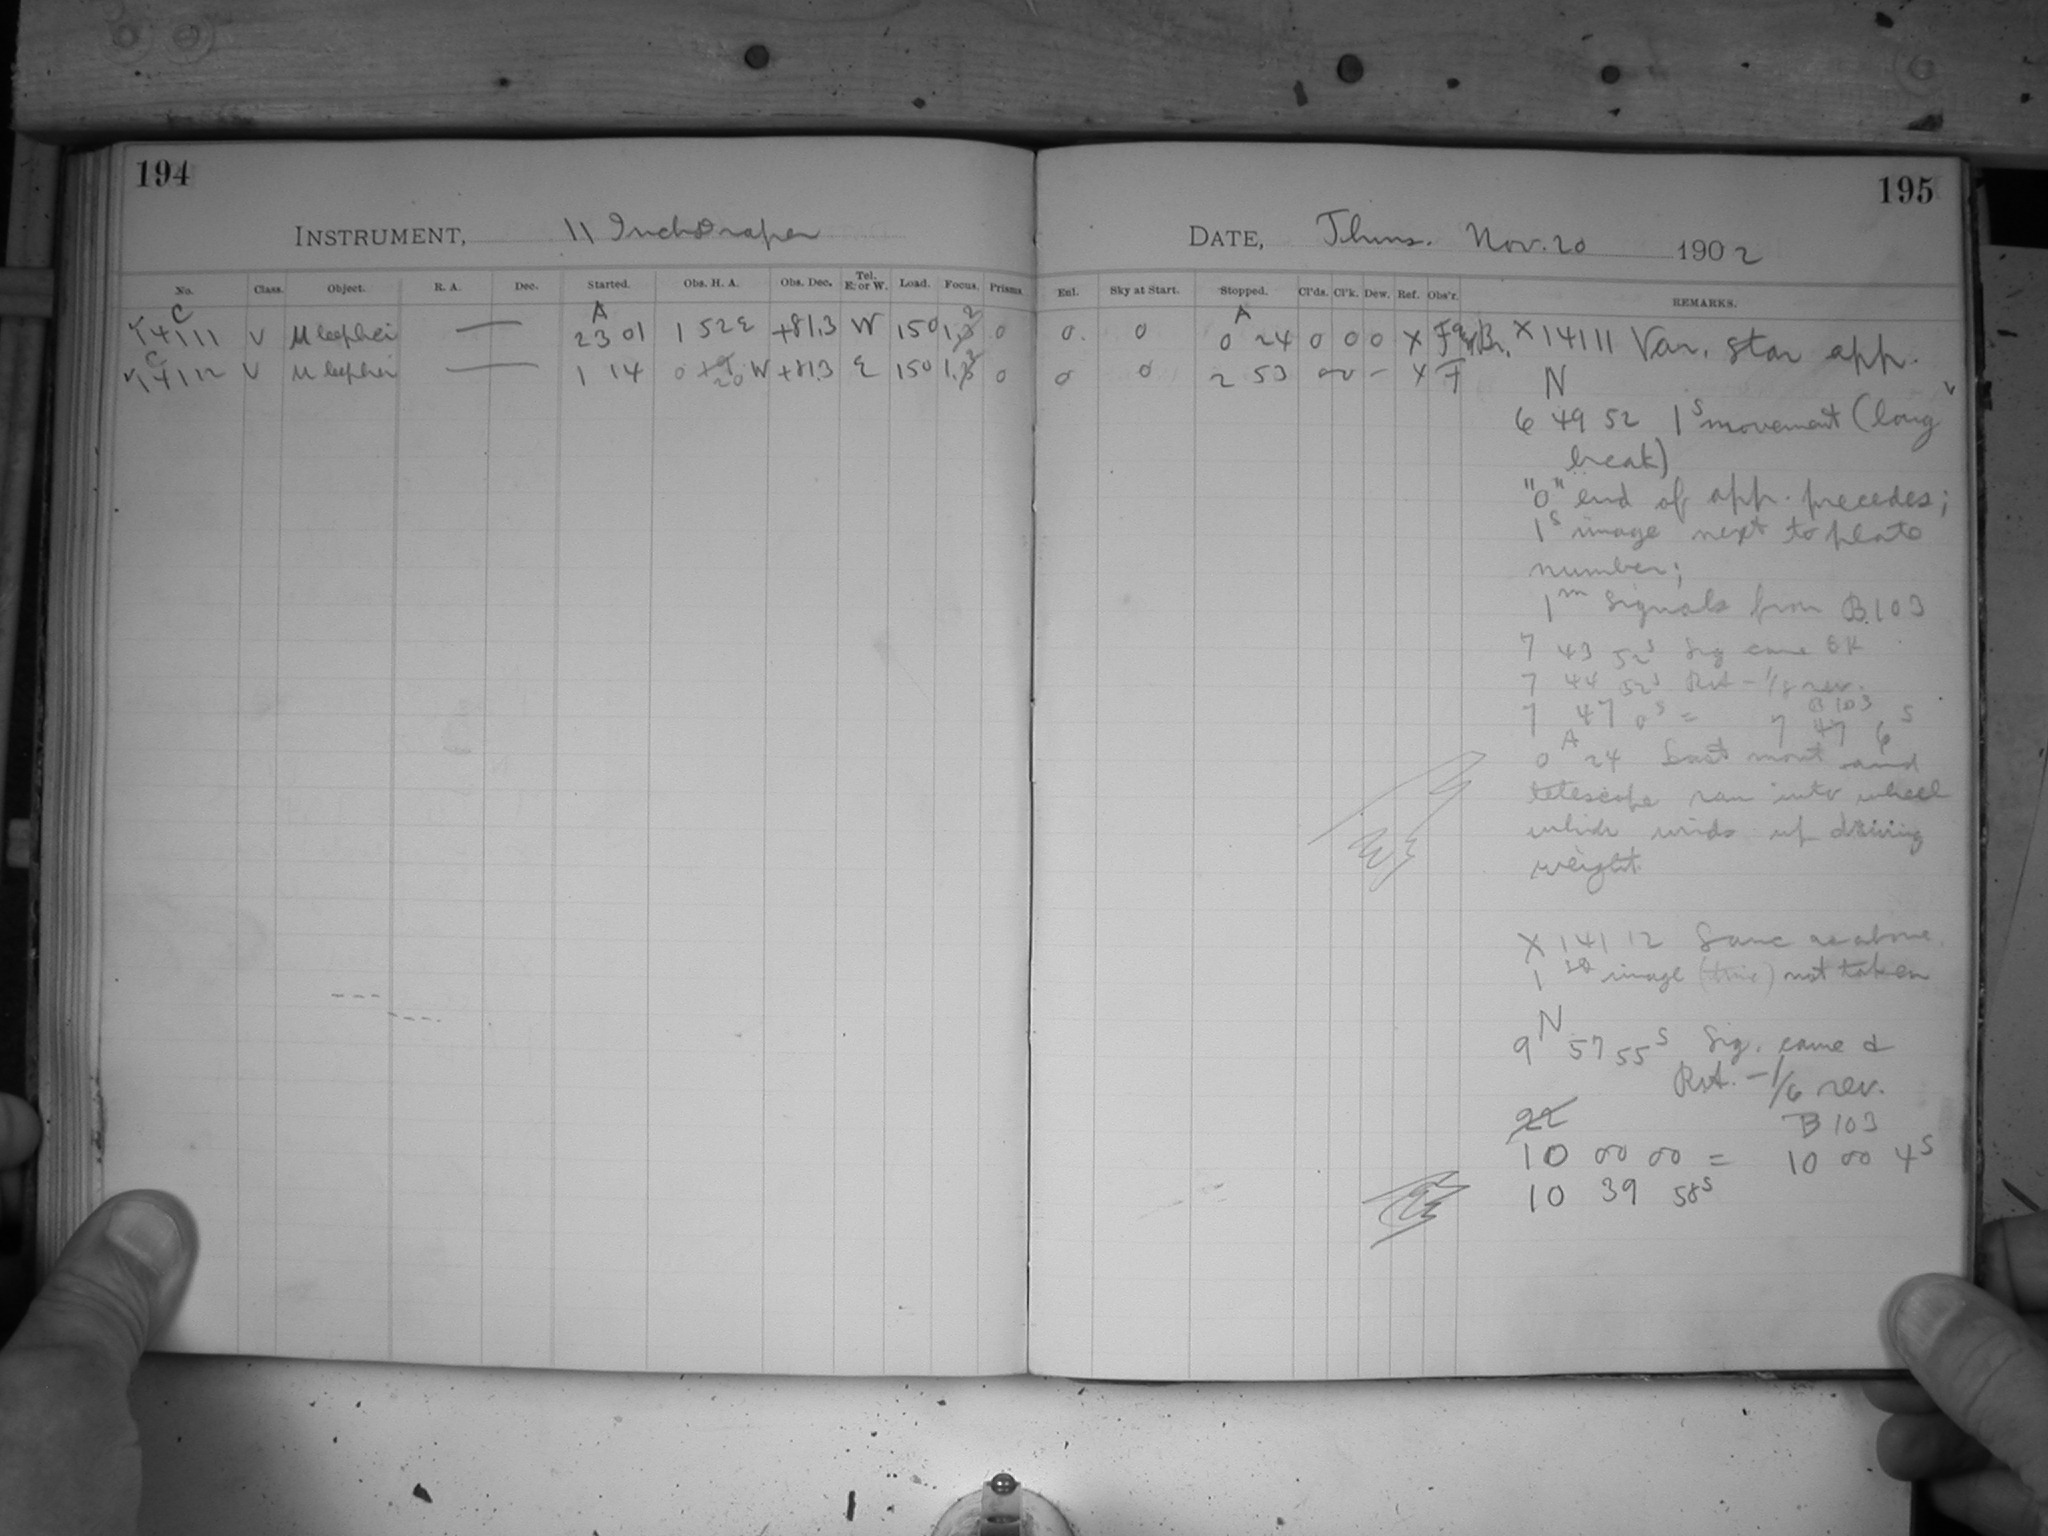 194
INSTRUMENT, 11 Inch Draper
No. Class. Object. R. A. Dec. Started. Obs. H. A. Obs. Dec. Tel. E. or W. Load. Focus. Prisms
C A 2
14111 V U Cephei — 23 01 1 52 E +81.3 W 150 1.3 0
C
14112 V U Cephei — 1 14 0 20 W +81.3 E 150 1.3 0
195
DATE, Thurs. Nov. 20 1902
Exl. Sky at Start. Stopped. Cl'ds. Cl'k. Dew. Ref. Obs'r. REMARKS.
A
0 0 0 24 0 0 0 X X 14111 Var. star app.
0 0 2 53 X F N
6 49 52 1s movement (long
break)
"0" end of app. precedes;
1s image next to plate
number;
1m signals from B103
7 43 52s Sig came OK
7 44 52s Rst -1/8 rev.
B103
7 47 0s = 7 47 6s
A
0 24 Last mont and
telescope ran into wheel
which winds up driving
weight.
X 14112 Same as above.
image (time) not taken
N
9 57 55s Sig. came &
Rst. -1/6 rev.
22
B103
10 00 00 = 10 00 4s
10 39 58s